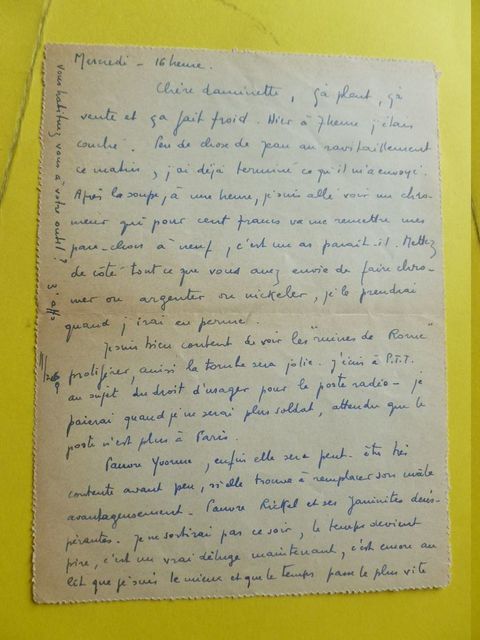 Mercredi - 16 heure.
Chère daminette, çà pleut, çà
vente et ça fait froid. Hier à 7 heure j'étais
couché. Peu de chose de Jean au ravitaillement
ce matin, j'ai déjà terminé ce qu'il m'a envoyé.
Après la soupe, à une heure, je suis allé voir un chro-
meur qui pour cent francs va me remettre mes
pare-chocs à neuf, c'est un as parait-il. Mettez
de côté tout ce que vous avez envie de faire chro-
mer ou argenter ou nickeler, je le prendrai
quand j'irai en perme.
Je suis bien content de voir les "ruines de Rome"
proliférer, ainsi la tombe sera jolie. J'écris à P.T.T.
au sujet du droit d'usager pour le poste radio - je
paierai quand je ne serai plus soldat, attendu que le
poste n'est plus à Paris.
Pauvre Yvonne, enfin elle sera peut-être très
contente avant peu, si elle trouve à remplacer son mâle
avantageusement. Pauvre Rickel et ses daminettes déses-
pérantes. Je ne sortirai pas ce soir, le temps devient
pire, c'est un vrai déluge maintenant, c'est encore au
lit que je suis le mieux et que le temps passe le plus vite
vous habituez vous à votre outil?